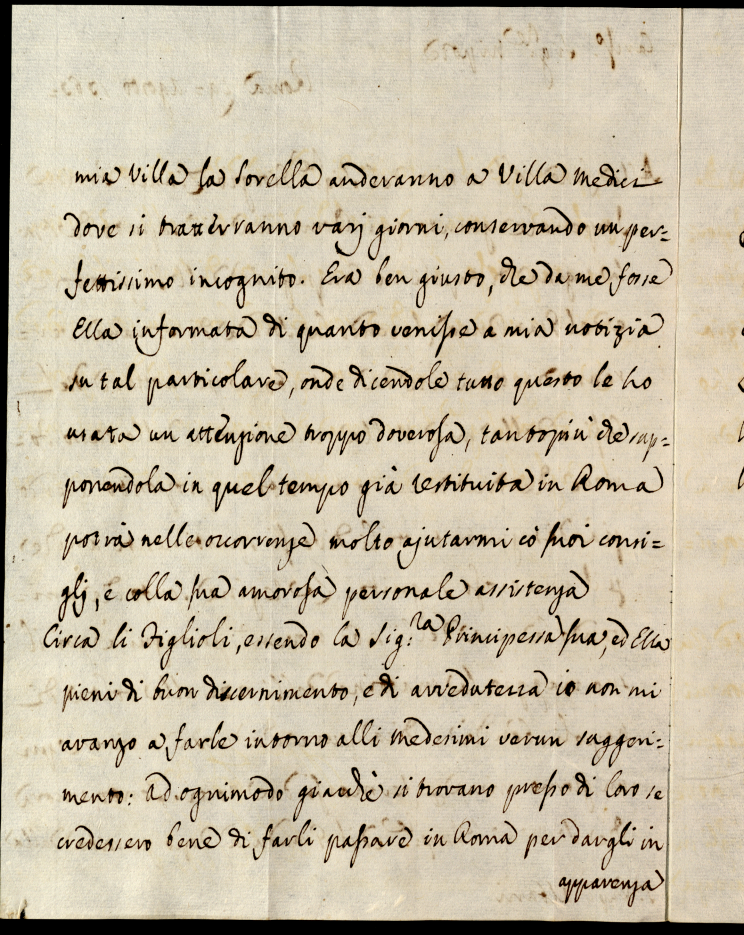 mia Villa la Sorella anderanno a Villa Medici
dove si tratterranno varj giorni, conservando un per=
fettissimo incognito. Era ben giusto, che da me fosse
Ella informata di quanto venisse a mia notizia
su tal particolare, onde dicendole tutto questo le ho
usata un attenzione troppo doverosa, tantopiù che sup=
ponendola in quel tempo già restituita in Roma
potrà nelle occorrenze molto ajutarmi cò suoi consi=
glj, e colla sua amorosa personale assistenza
Circa li Figlioli, essendo la Sig:ra Principessa sua, ed Ella
pieni di buon discernimento, e di avvedutezza io non mi
avanzo a farle intorno alli medesimi verun suggeri=
mento: Ad ognimodo giacchè si trovano presso di loro se
credessero bene di farli passare in Roma per dargli in
apparenza